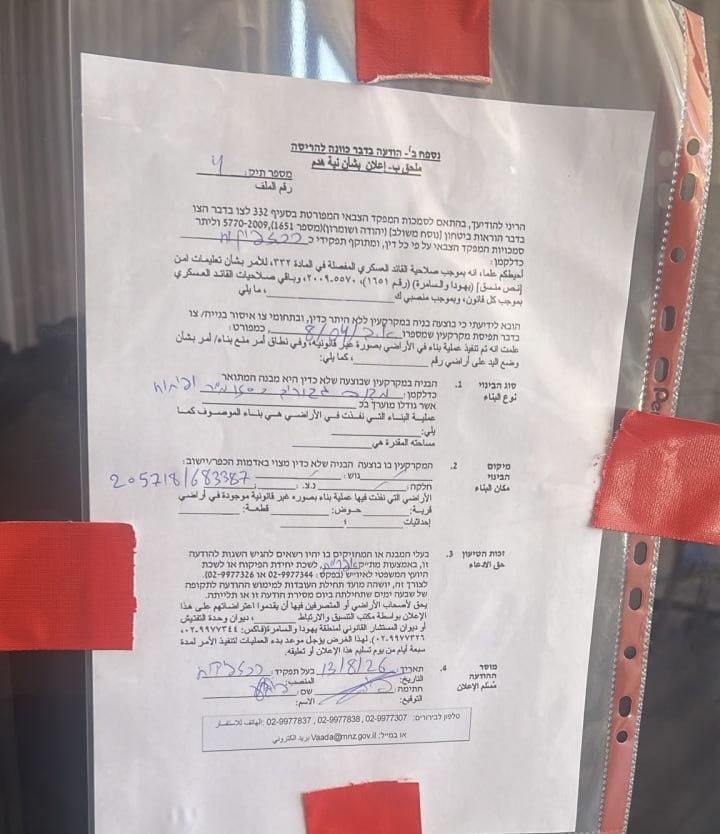 נספח ב'- הודעה בדבר כוונה להריסה
ملحق ب- إعلان بشأن نية هدم
מספר תיק: 4
رقم الملف
הריני להודיעך, בהתאם לסמכות המפקד הצבאי המפורטת בסעיף 332 לצו בדבר הצו
בדבר הוראות ביטחון (נוסח משולב) (יהודה ושומרון)(מספר 1651), 5770-2009 וליתר
סמכויות המפקד הצבאי על פי כל דין, ומתוקף תפקידי כ
כדלקמן:
أحيطكم علما، انه بموجب صلاحية القائد العسكري المفصلة في المادة ٣٣٢، للأمر بشأن تعليمات امن
[نص منسق] (يهودا والسامرة) (رقم ١٦٥١)، ٥٥٧٠-٢٠٠٩، وباقي صلاحيات القائد العسكري
بموجب كل قانون، وبموجب منصبي ك ، ما يلي
הובא לידיעתי כי בוצעה בניה במקרקעין ללא היתר כדין, ובתחומי צו איסור בנייה/ צו
בדבר תפיסת מקרקעין שמספרו 8/04, כמפורט:
علمت انه تم تنفيذ عملية بناء في الأراضي بصورة غير قانونية، وفي نطاق أمر منع بناء/ أمر بشأن
وضع اليد على أراضي رقم ، كما يلي:
סוג הבינוי 1. הבניה במקרקעין שבוצעה שלא כדין היא מבנה המתואר
نوع البناء כדלקמן:
אשר גודלו מוערך בכ
عملية البناء التي نفذت في الأراضي هي بناء الموصوف كما
يلي:
مساحته المقدرة هي
מיקום 2. המקרקעין בו בוצעה הבניה שלא כדין מצוי באדמות הכפר/ישוב:
הבינוי גוש:
مكان البناء חלקה: נ.צ.: 205718/683387
الأراضي التي نفذت فيها عملية بناء بصوره غير قانونية موجودة في أراضي
قرية: حوض: قطعة:
إحداثيات :
זכות הטיעון 3. בעלי המבנה או המחזיקים בו יהיו רשאים להגיש השגות להודעה
حق الادعاء זו, באמצעות מת"ק אפרים, לשכת יחידת הפיקוח או לשכת
היועץ המשפטי לאיו"ש (בפקס: 02-9977344 או 02-9977326).
לצורך זה, יושהה מועד תחילת העבודות למימוש ההודעה לתקופה
של שבעה ימים שתחילתה ביום מסירת הודעה זו או תלייתה.
يحق لأصحاب الأراضي أو المتصرفين فيها أن يقدموا اعتراضاتهم على هذا
الإعلان بواسطة مكتب التنسيق والارتباط ، ديوان وحدة التفتيش
أو ديوان المستشار القانوني لمنطقة يهودا والسامرة(فاكس: ٠٢-٩٩٧٧٣٤٤،
٠٢-٩٩٧٧٣٢٦). لهذا الغرض يؤجل موعد بدء العمليات لتنفيذ الأمر لمدة
سبعة أيام من يوم تسليم هذا الإعلان أو تعليقه.
מוסר 4. תאריך: 13/8/26 בעל תפקיד:
ההודעה التاريخ: المنصب:
مسلم الإعلان חתימה: שם:
التوقيع: الاسم:
טלפון לבירורים: 02-9977307, 02-9977838, 02-9977837 :الهاتف للاستفسار
או במייל: Vaada@mnz.gov.il بريد الكتروني